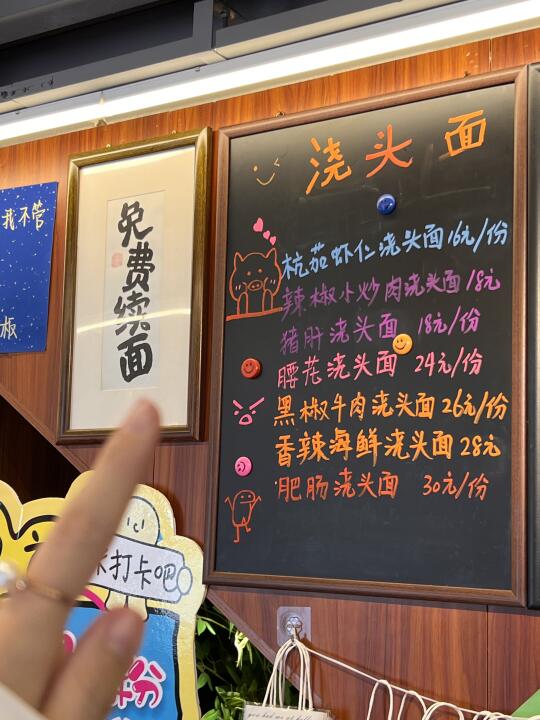 我不管
板
免费续面
浇头面
杭茄虾仁浇头面16元/份
辣椒小炒肉浇头面18元
猪肝浇头面 18元/份
腰花浇头面 24元/份
黑椒牛肉浇头面26元/份
香辣海鲜浇头面28元
肥肠浇头面 30元/份
打卡吧